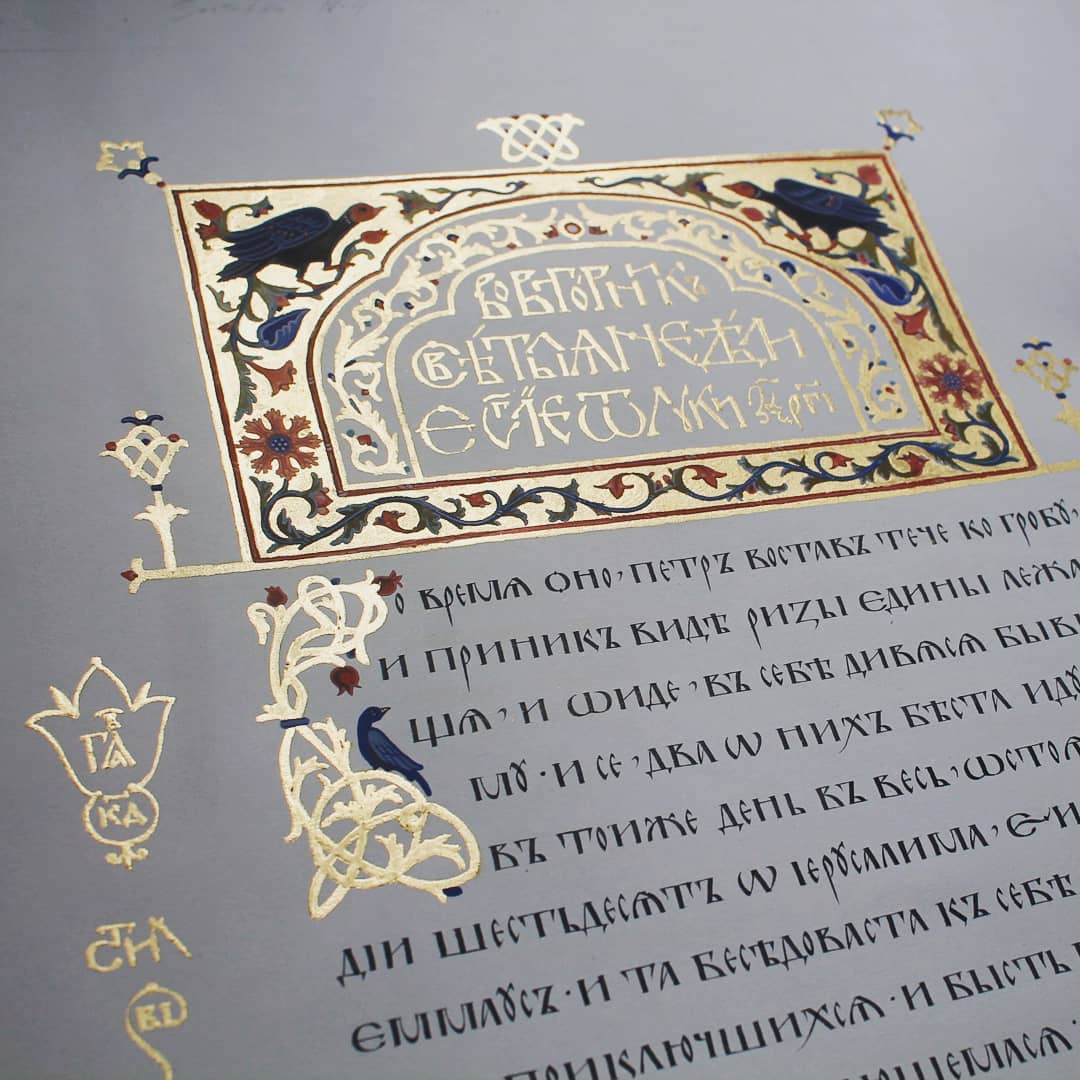 ВОВТО́РНИКЪ
СВѢ́ТЛЫѦ НЕДѢ́ЛИ
Ѿ ЛꙊКИ
Во времѧ оно, петръ воставъ тече ко гробꙋ,
и приникъ видѣ ризы едины лежа
щѧ, и ѿиде, въ себѣ дивѧсѧ бывш
мꙋ · и се, два ѿ нихъ бѣста идꙋ
въ тойже день въ весь, ѿстоѧ
дій шестьдесѧтъ ѿ іерꙋсалима,
еммаꙋсъ · и та бесѣдоваста къ себѣ
приключшихсѧ · и бысть
ГЛА
КД
СТИХ
ВІ